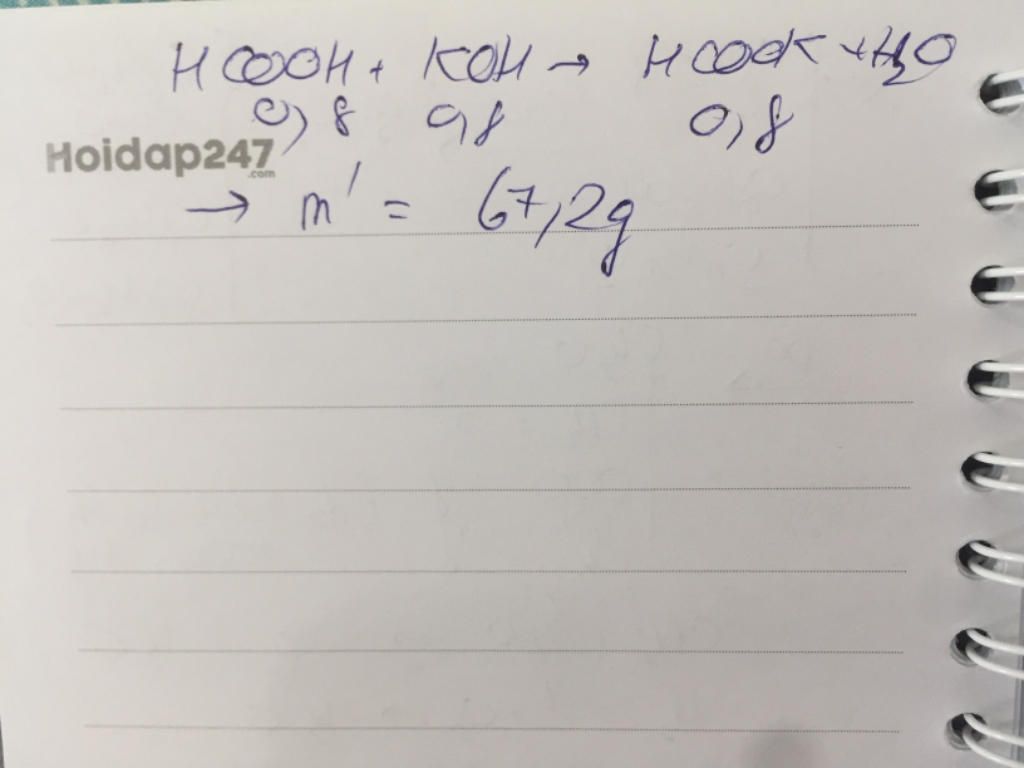 HCOOH + KOH → HCOOK + H₂O
0,8 0,8 0,8
Hoidap247
.com
→ m' = 67,2g